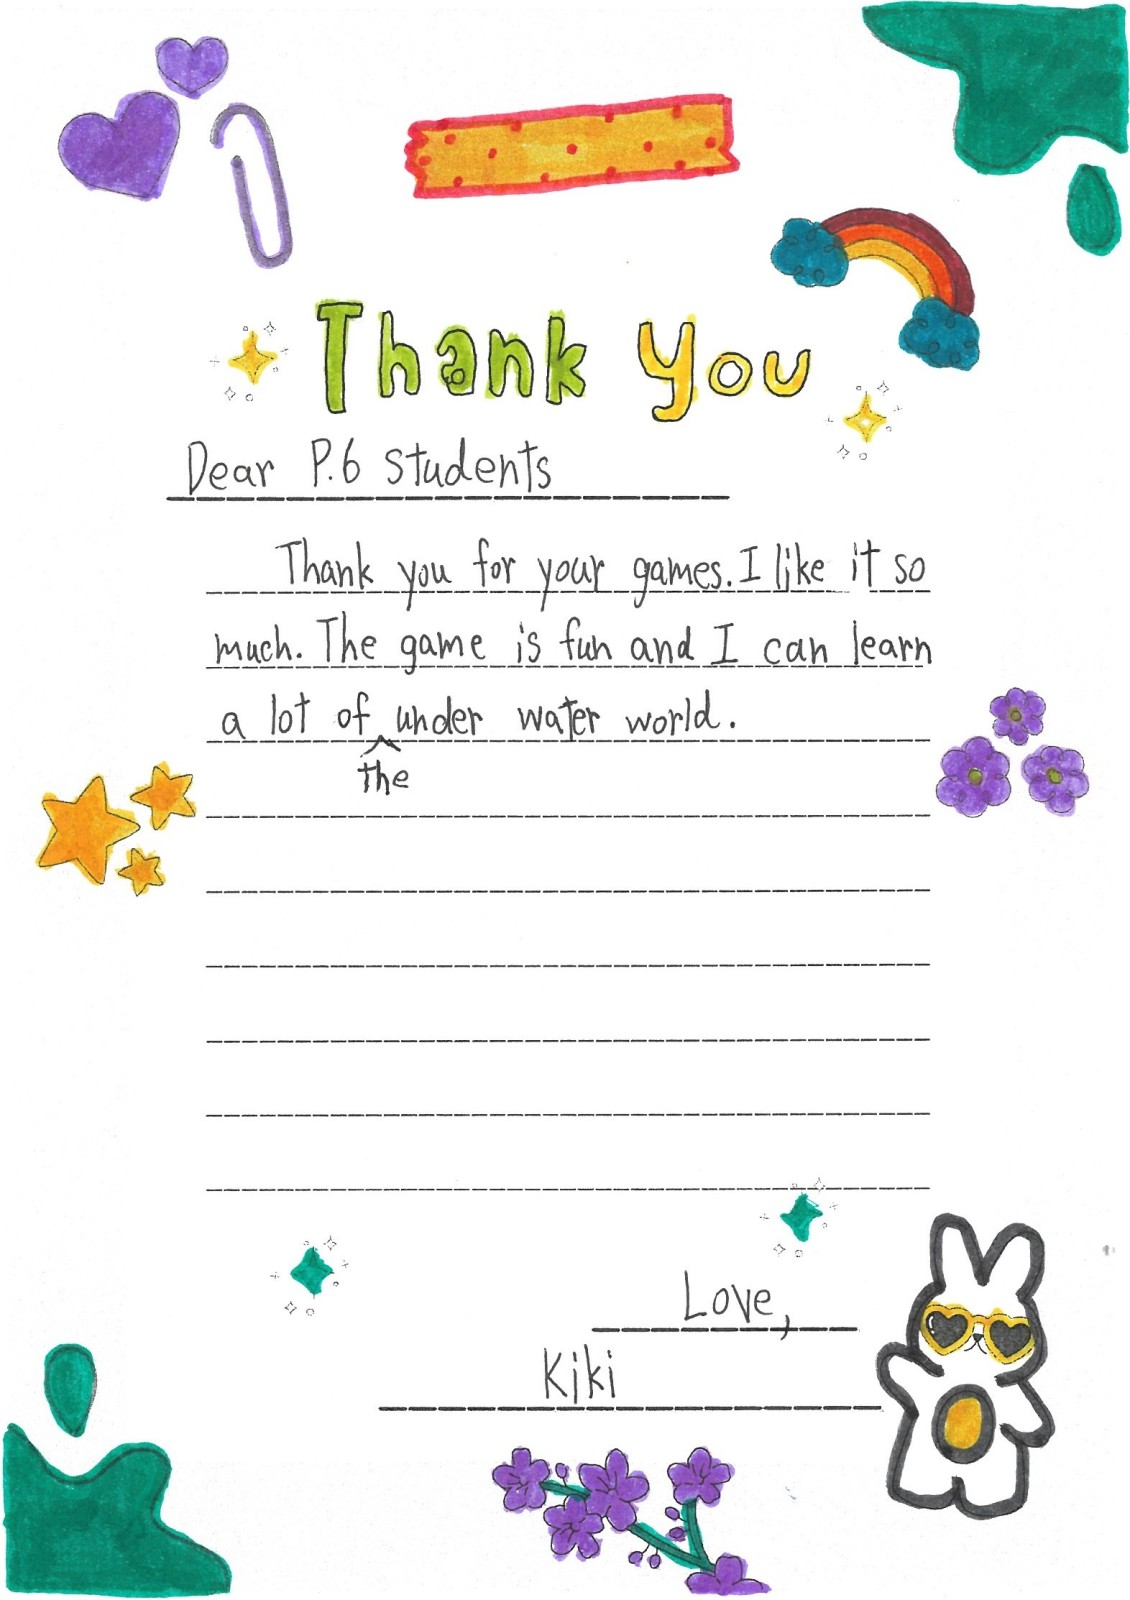 Thank You
Dear P.6 students
Thank you for your games. I like it so
much. The game is fun and I can learn
a lot of under water world.
the
Love,
Kiki